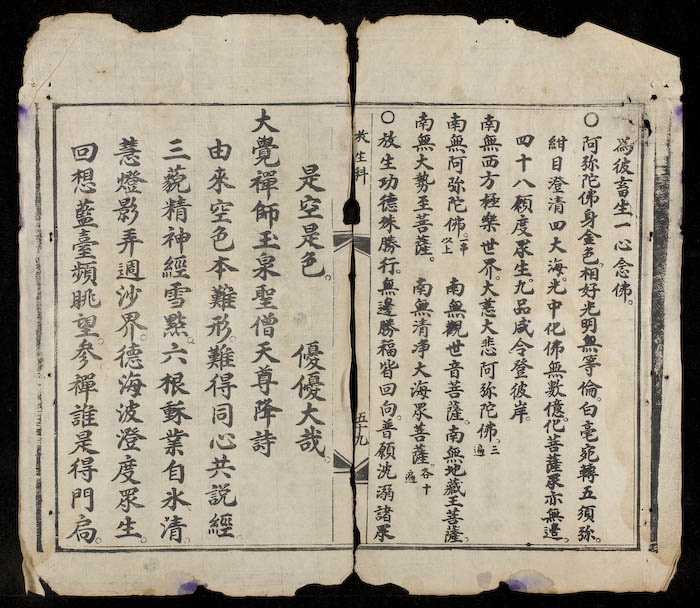 為彼畜生一心念佛。
○阿弥陀佛身金色。相好光明無等倫。白毫宛轉五須弥。
紺目澄清四大海。光中化佛無數億。化菩薩眾亦無邊。
四十八願度眾生。九品咸令登彼岸。
南無西方極樂世界。大慈大悲阿弥陀佛。三遍
南無阿弥陀佛。以上 南無觀世音菩薩。南無地藏王菩薩。
南無大势至菩薩。 南無清净大海眾菩薩。各十遍
○放生功德殊勝行。無邊勝福皆回向。普願沈溺諸眾
放生科 五十九
是空是色。 優優大哉。
大覺禪師玉泉聖僧天尊降詩
由來空色本難形。難得同心共説經
三藐精神經雪點。六根穌業自氷清。
慧燈影弄週沙界。德海波澄度眾生。
回想藍臺頻眺望。参禪誰是得門扃。